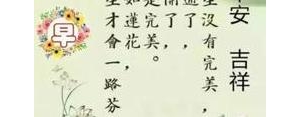 安 吉祥
生沒有完美，
了，
了，
是完美。
如蓮花
生才會一路芬
早